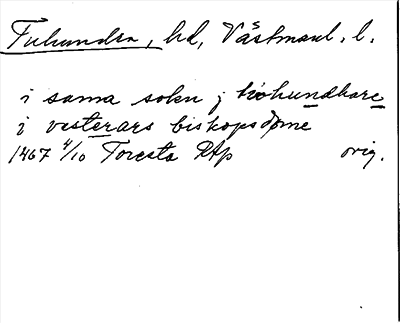 Tuhundra, hd, Västmanl. l.
i sama sokn j tiohundhare
i vesterars biskopsdöme
1467 4/10 Toresta RAp orig.